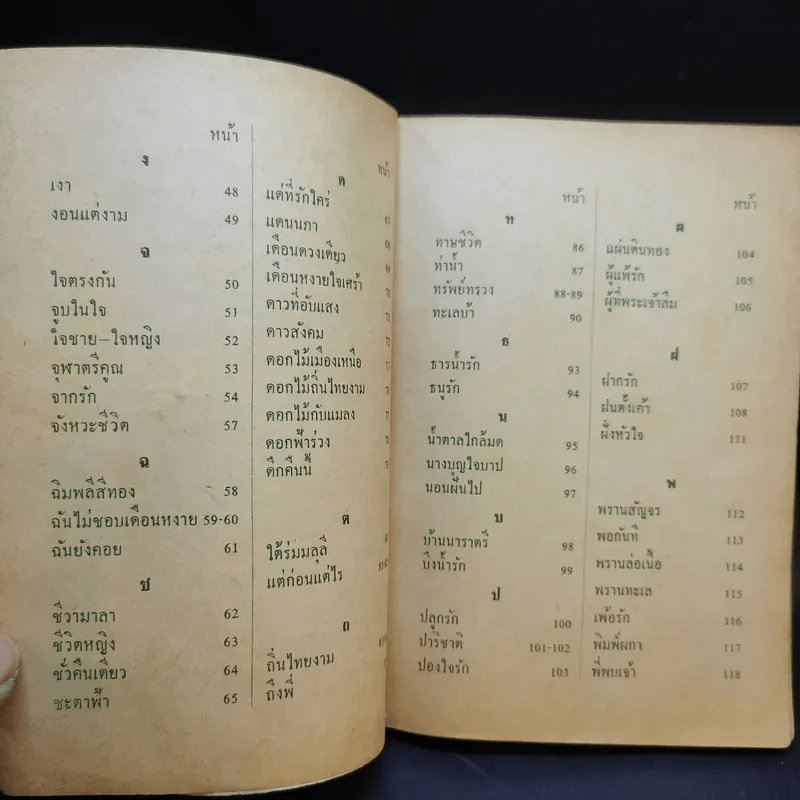 หน้า
ง
เงา 48
งอนแต่งาม 49
จ
ใจตรงกัน 50
จูบในใจ 51
ใจชาย-ใจหญิง 52
จุฬาตรีคูณ 53
จากรัก 54
จังหวะชีวิต 57
ฉ
ฉิมพลีสีทอง 58
ฉันไม่ชอบเดือนหงาย 59-60
ฉันยังคอย 61
ช
ชีวามาลา 62
ชีวิตหญิง 63
ชั่วคืนเดียว 64
ชะตาฟ้า 65
หน้า
ด
แด่ที่รักใคร่
แดนนภา
เดือนดวงเดียว
เดือนหงายใจเศร้า
ดาวที่อับแสง
ดาวสังคม
ดอกไม้เมืองเหนือ
ดอกไม้ถิ่นไทยงาม
ดอกไม้กับแมลง
ดอกฟ้าร่วง
ดึกคืนนี้
ต
ใต้ร่มมลุลี
แต่ก่อนแต่ไร
ถ
ถิ่นไทยงาม
ถึงพี่
หน้า
ท
ทาษชีวิต 86
ท่าน้ำ 87
ทรัพย์ทรวง 88-89
ทะเลบ้า 90
ธ
ธารน้ำรัก 93
ธนูรัก 94
น
น้ำตาลใกล้มด 95
นางบุญใจบาป 96
นอนฝันไป 97
บ
บ้านนาราตรี 98
บึงน้ำรัก 99
ป
ปลูกรัก 100
ปาริชาติ 101-102
ปองใจรัก 103
หน้า
ผ
แผ่นดินทอง 104
ผู้แพ้รัก 105
ผู้ที่พระเจ้าลืม 106
ฝ
ฝากรัก 107
ฝนตั้งเค้า 108
ฝั่งหัวใจ 111
พ
พรานสัญจร 112
พอกันที 113
พรานล่อเนื้อ 114
พรานทะเล 115
เพ้อรัก 116
พิมพ์ผกา 117
พี่พบเจ้า 118